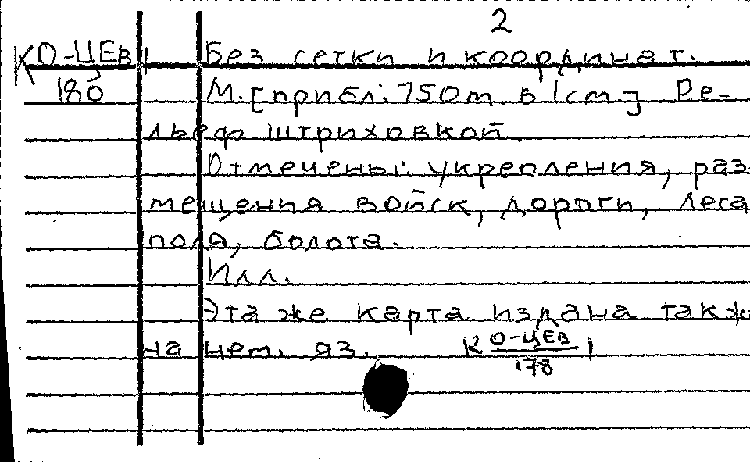 2
К О-ЦЕВ 1 Без сетки и координат.
180 М. [прибл. 750 m. в 1 cm.] Ре-
льеф штриховкой.
Отмечены: укрепления, раз-
мещения войск, дороги, леса
поля, болота.
Илл.
Эта же карта издана такж
на нем. яз. К О-ЦЕВ 1
178